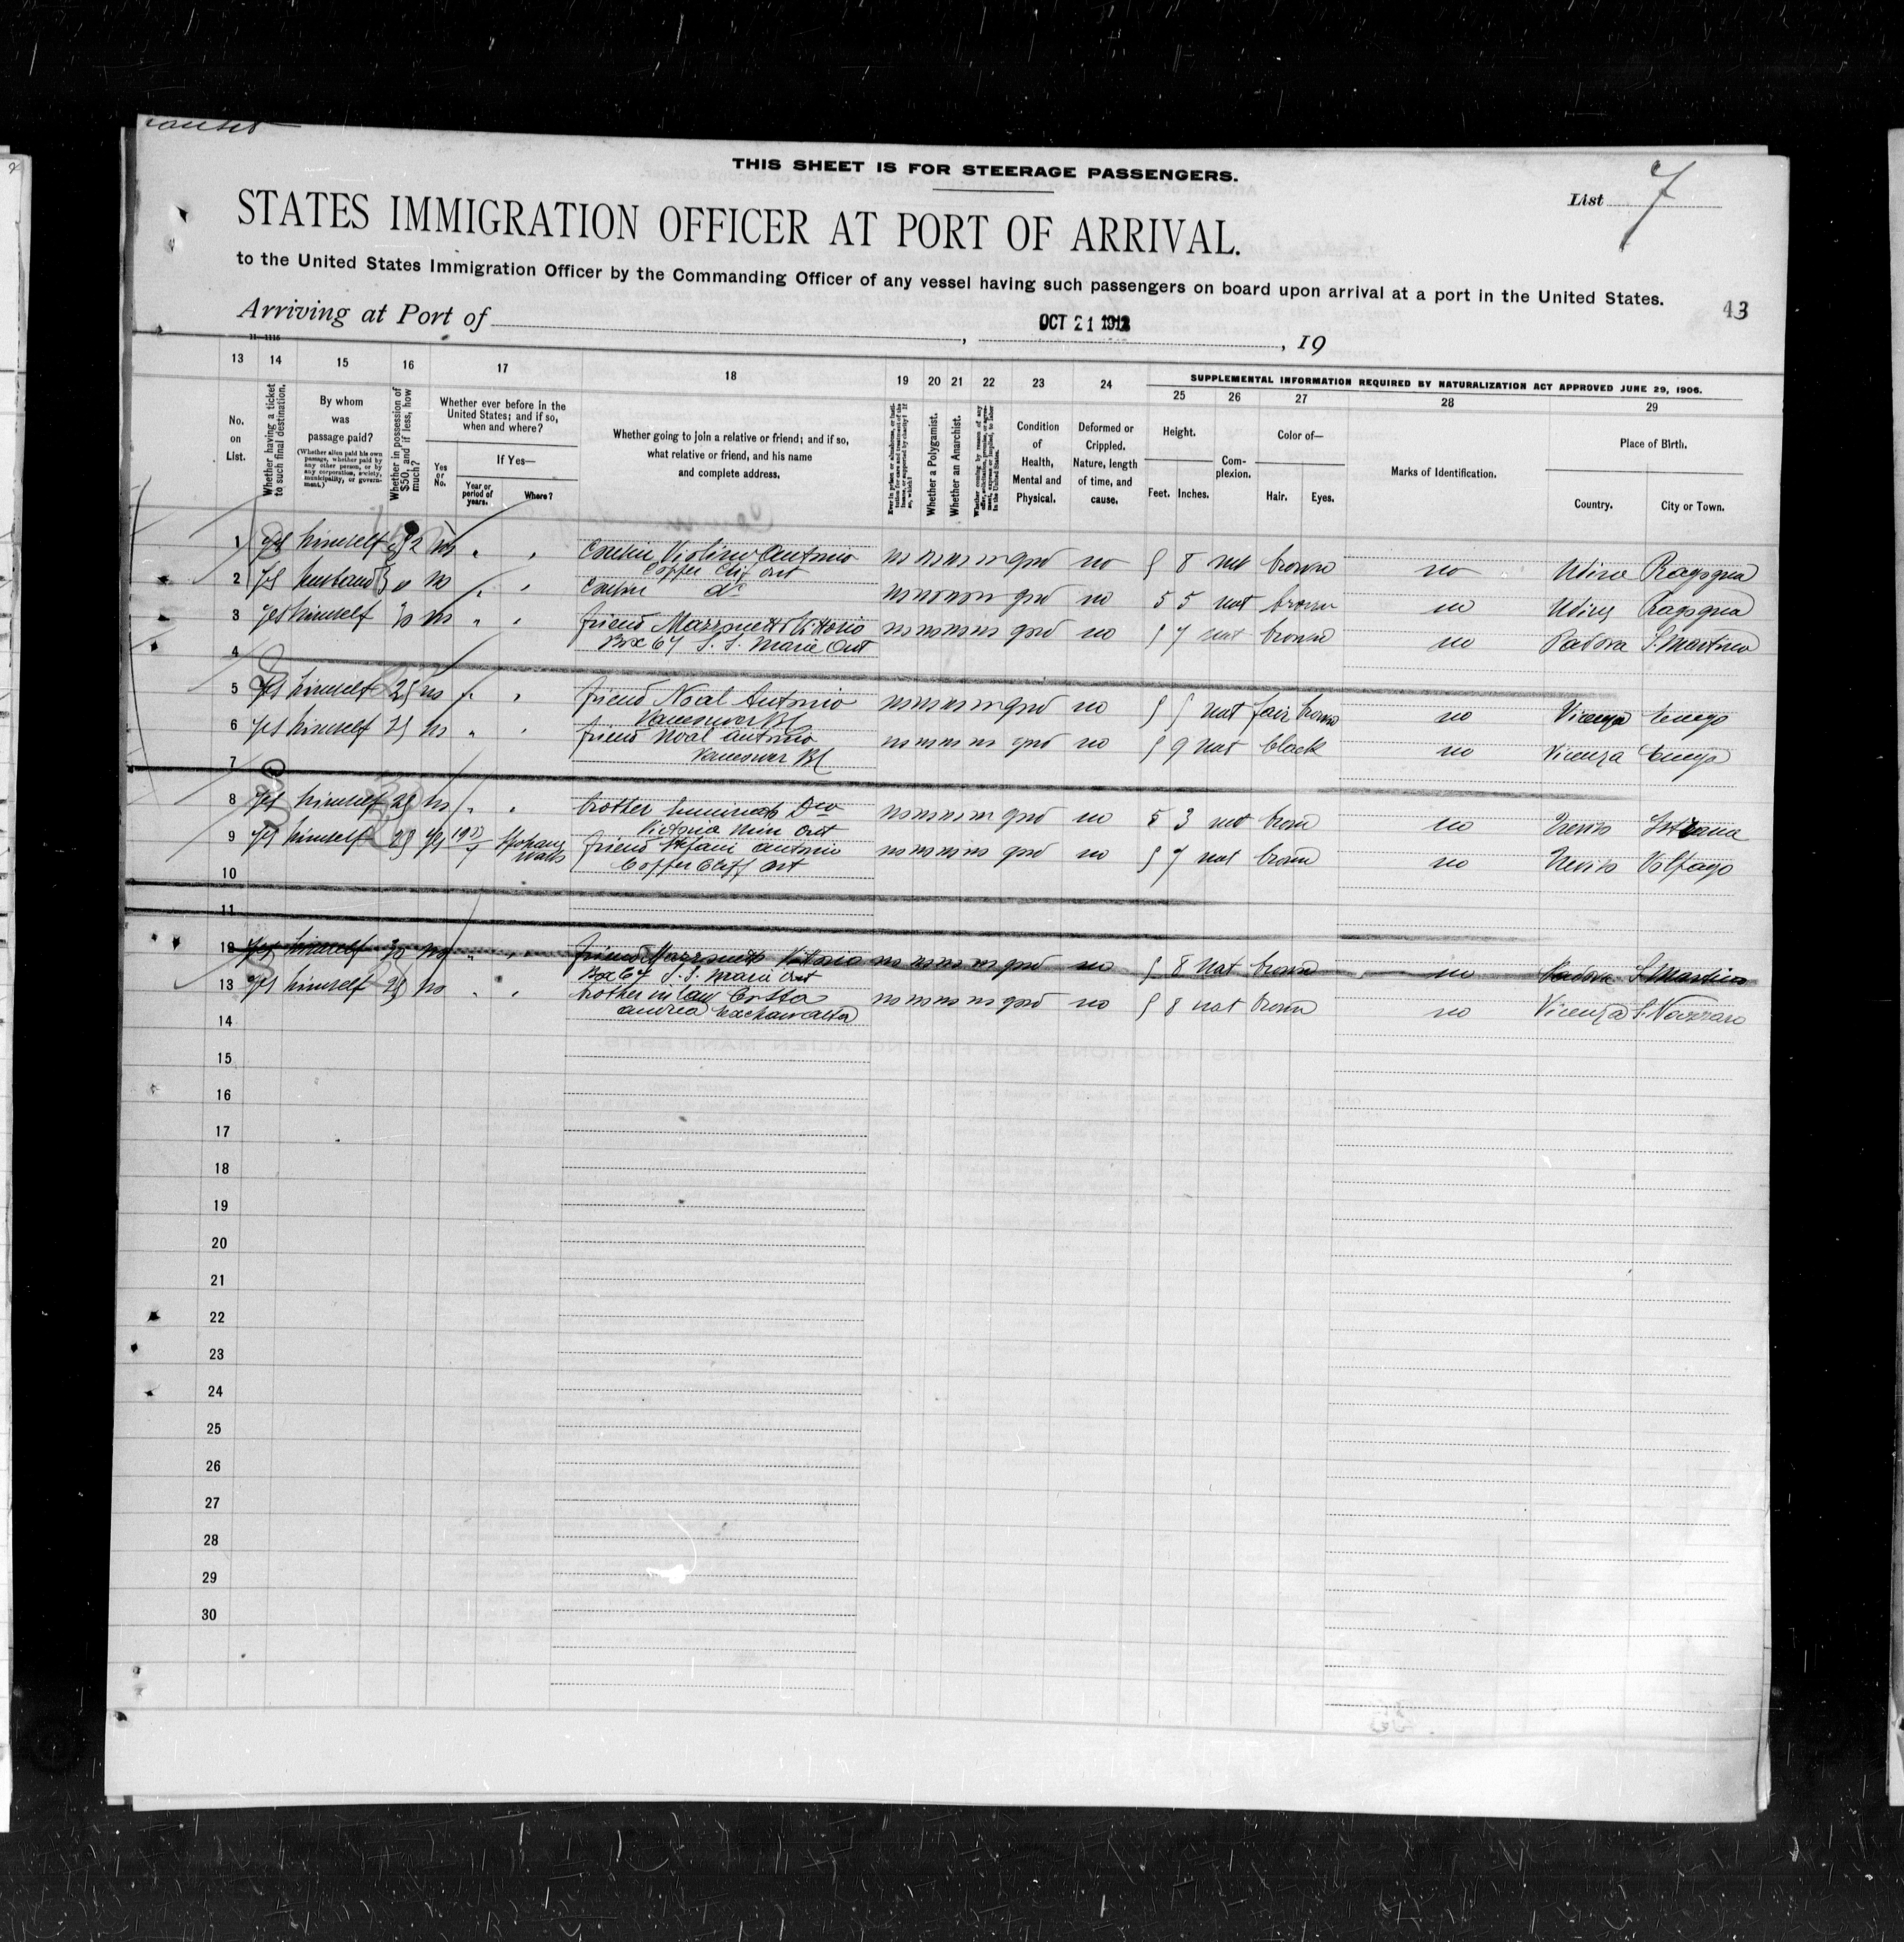 THIS SHEET IS FOR STEERAGE PASSENGERS.
List 7
STATES IMMIGRATION OFFICER AT PORT OF ARRIVAL.
to the United States Immigration Officer by the Commanding Officer of any vessel having such passengers on board upon arrival at a port in the United States.
43
Arriving at Port of , OCT 21 1912 , 19
11—1116
13 14 15 16 17 18 19 20 21 22 23 24
SUPPLEMENTAL INFORMATION REQUIRED BY NATURALIZATION ACT APPROVED JUNE 29, 1906.
25 26 27 28 29
No. on List.
Whether having a ticket to such final destination.
By whom was passage paid?
(Whether alien paid his own passage, whether paid by any other person, or by any corporation, society, municipality, or government.)
Whether in possession of $50, and if less, how much?
Whether ever before in the United States; and if so, when and where?
Yes or No.
If Yes—
Year or period of years.
Where?
Whether going to join a relative or friend; and if so, what relative or friend, and his name and complete address.
Whether a Polygamist.
Whether an Anarchist.
Condition of Health, Mental and Physical.
Deformed or Crippled. Nature, length of time, and cause.
Height.
Feet. Inches.
Complexion.
Color of—
Hair. Eyes.
Marks of Identification.
Place of Birth.
Country. City or Town.
1 yes himself no cousin Violino Antonio no no no no good no 5 8 nat brown no Udine Ragogna
Copper Clif Ont
2 yes husband no cousin do no no no no good no 5 5 nat brown no Udine Ragogna
3 yes himself 30 no friend Vittorio no no no no good no 5 7 nat brown no Padova S. Martino
Box 67 S. S. Marie Ont
4
5 yes himself 25 no friend Noal Antonio no no no no good no 5 5 nat fair brown no Vicenza
Vancouver BC
6 yes himself 25 no friend Noal Antonio no no no no good no 5 9 nat black no Vicenza
Vancouver BC
7
8 yes himself 25 no brother no no no no good no 5 3 nat brown no Treviso Istrana
Victoria Mine Ont
9 yes himself 25 yes friend Antonio no no no no good no 5 7 nat brown no Treviso Volpago
Copper Cliff Ont
10
11
12 yes himself 30 no friend Vittorio no no no no good no 5 8 nat brown no Padova S Martino
Box 67 S. S. Marie Ont
13 yes himself 25 no brother in law Costa no no no no good no 5 8 nat brown no Vicenza
Andrea
14
15
16
17
18
19
20
21
22
23
24
25
26
27
28
29
30